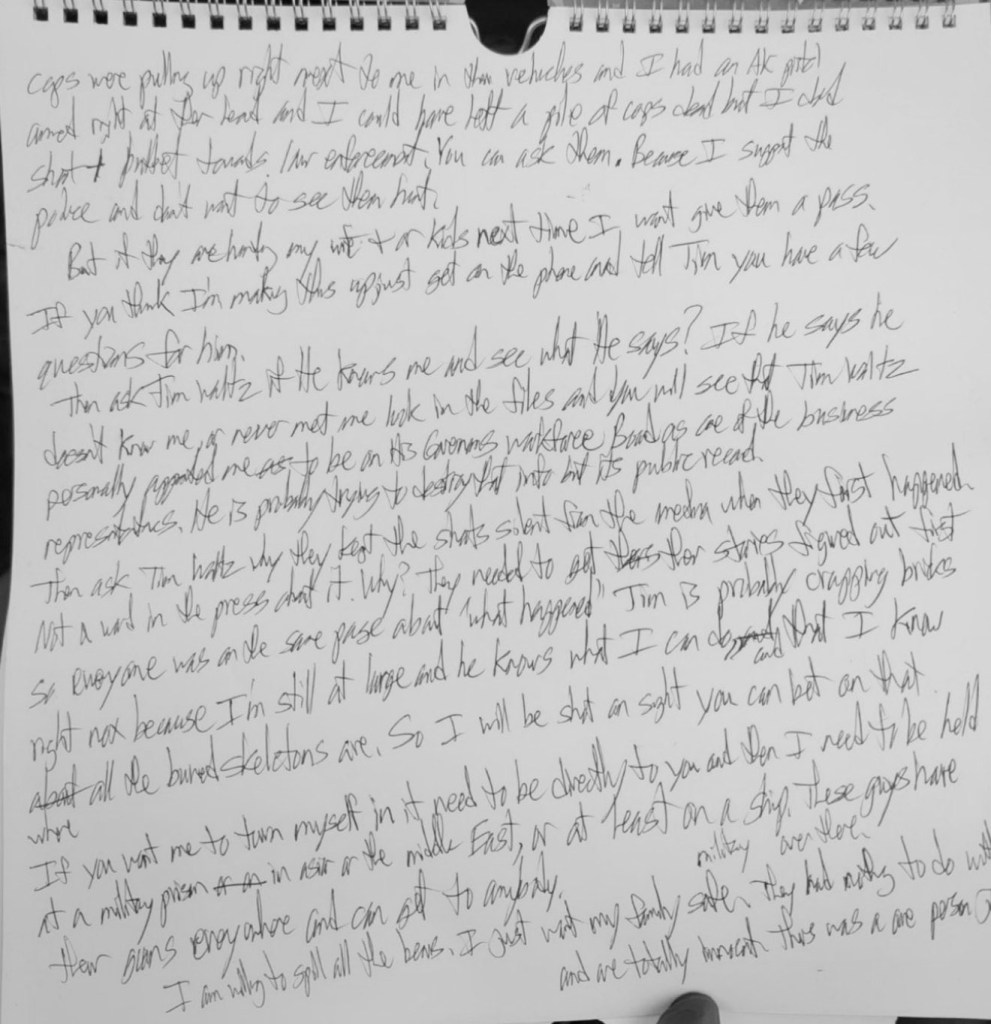 cops were pulling up right next to me in their vehicles and I had an AK pistol
aimed right at their head and I could have left a pile of cops dead but I did
shot 1 bullet towards law enforcement. You can ask them. Because I support the
police and don't want to see them hurt.
But if they are hurting my wife + or kids next time I wont give them a pass.
If you think I'm making this up just get on the phone and tell Tim you have a few
questions for him.
Then ask Tim Waltz if He knows me and see what He says? If he says he
doesn't know me, or never met me look in the files and you will see that Tim Waltz
personally appointed me to be on His Governors workforce Board as one of the business
representitives. He is probably trying to destroy that info but its public record.
Then ask Tim Waltz why they kept the shots silent from the media when they first happened.
Not a word in the press about it. Why? They needed to get their stories figured out first
so everyone was on the same page about "what happened" Tim is probably crapping bricks
right nox because I'm still at large and he knows what I can and that I know
where all the buried skeletons are. So I will be shot on sight you can bet on that.
If you want me to turn myself in it need to be directly to you and then I need to be held
at a military prison in asia or the middle East, or at least on a military ship. These guys have
their guns everywhere and can get to anybody. over there.
I am willing to spill all the beans. I just want my family safe. They had nothing to do with
and are totally innocent. This was a one person